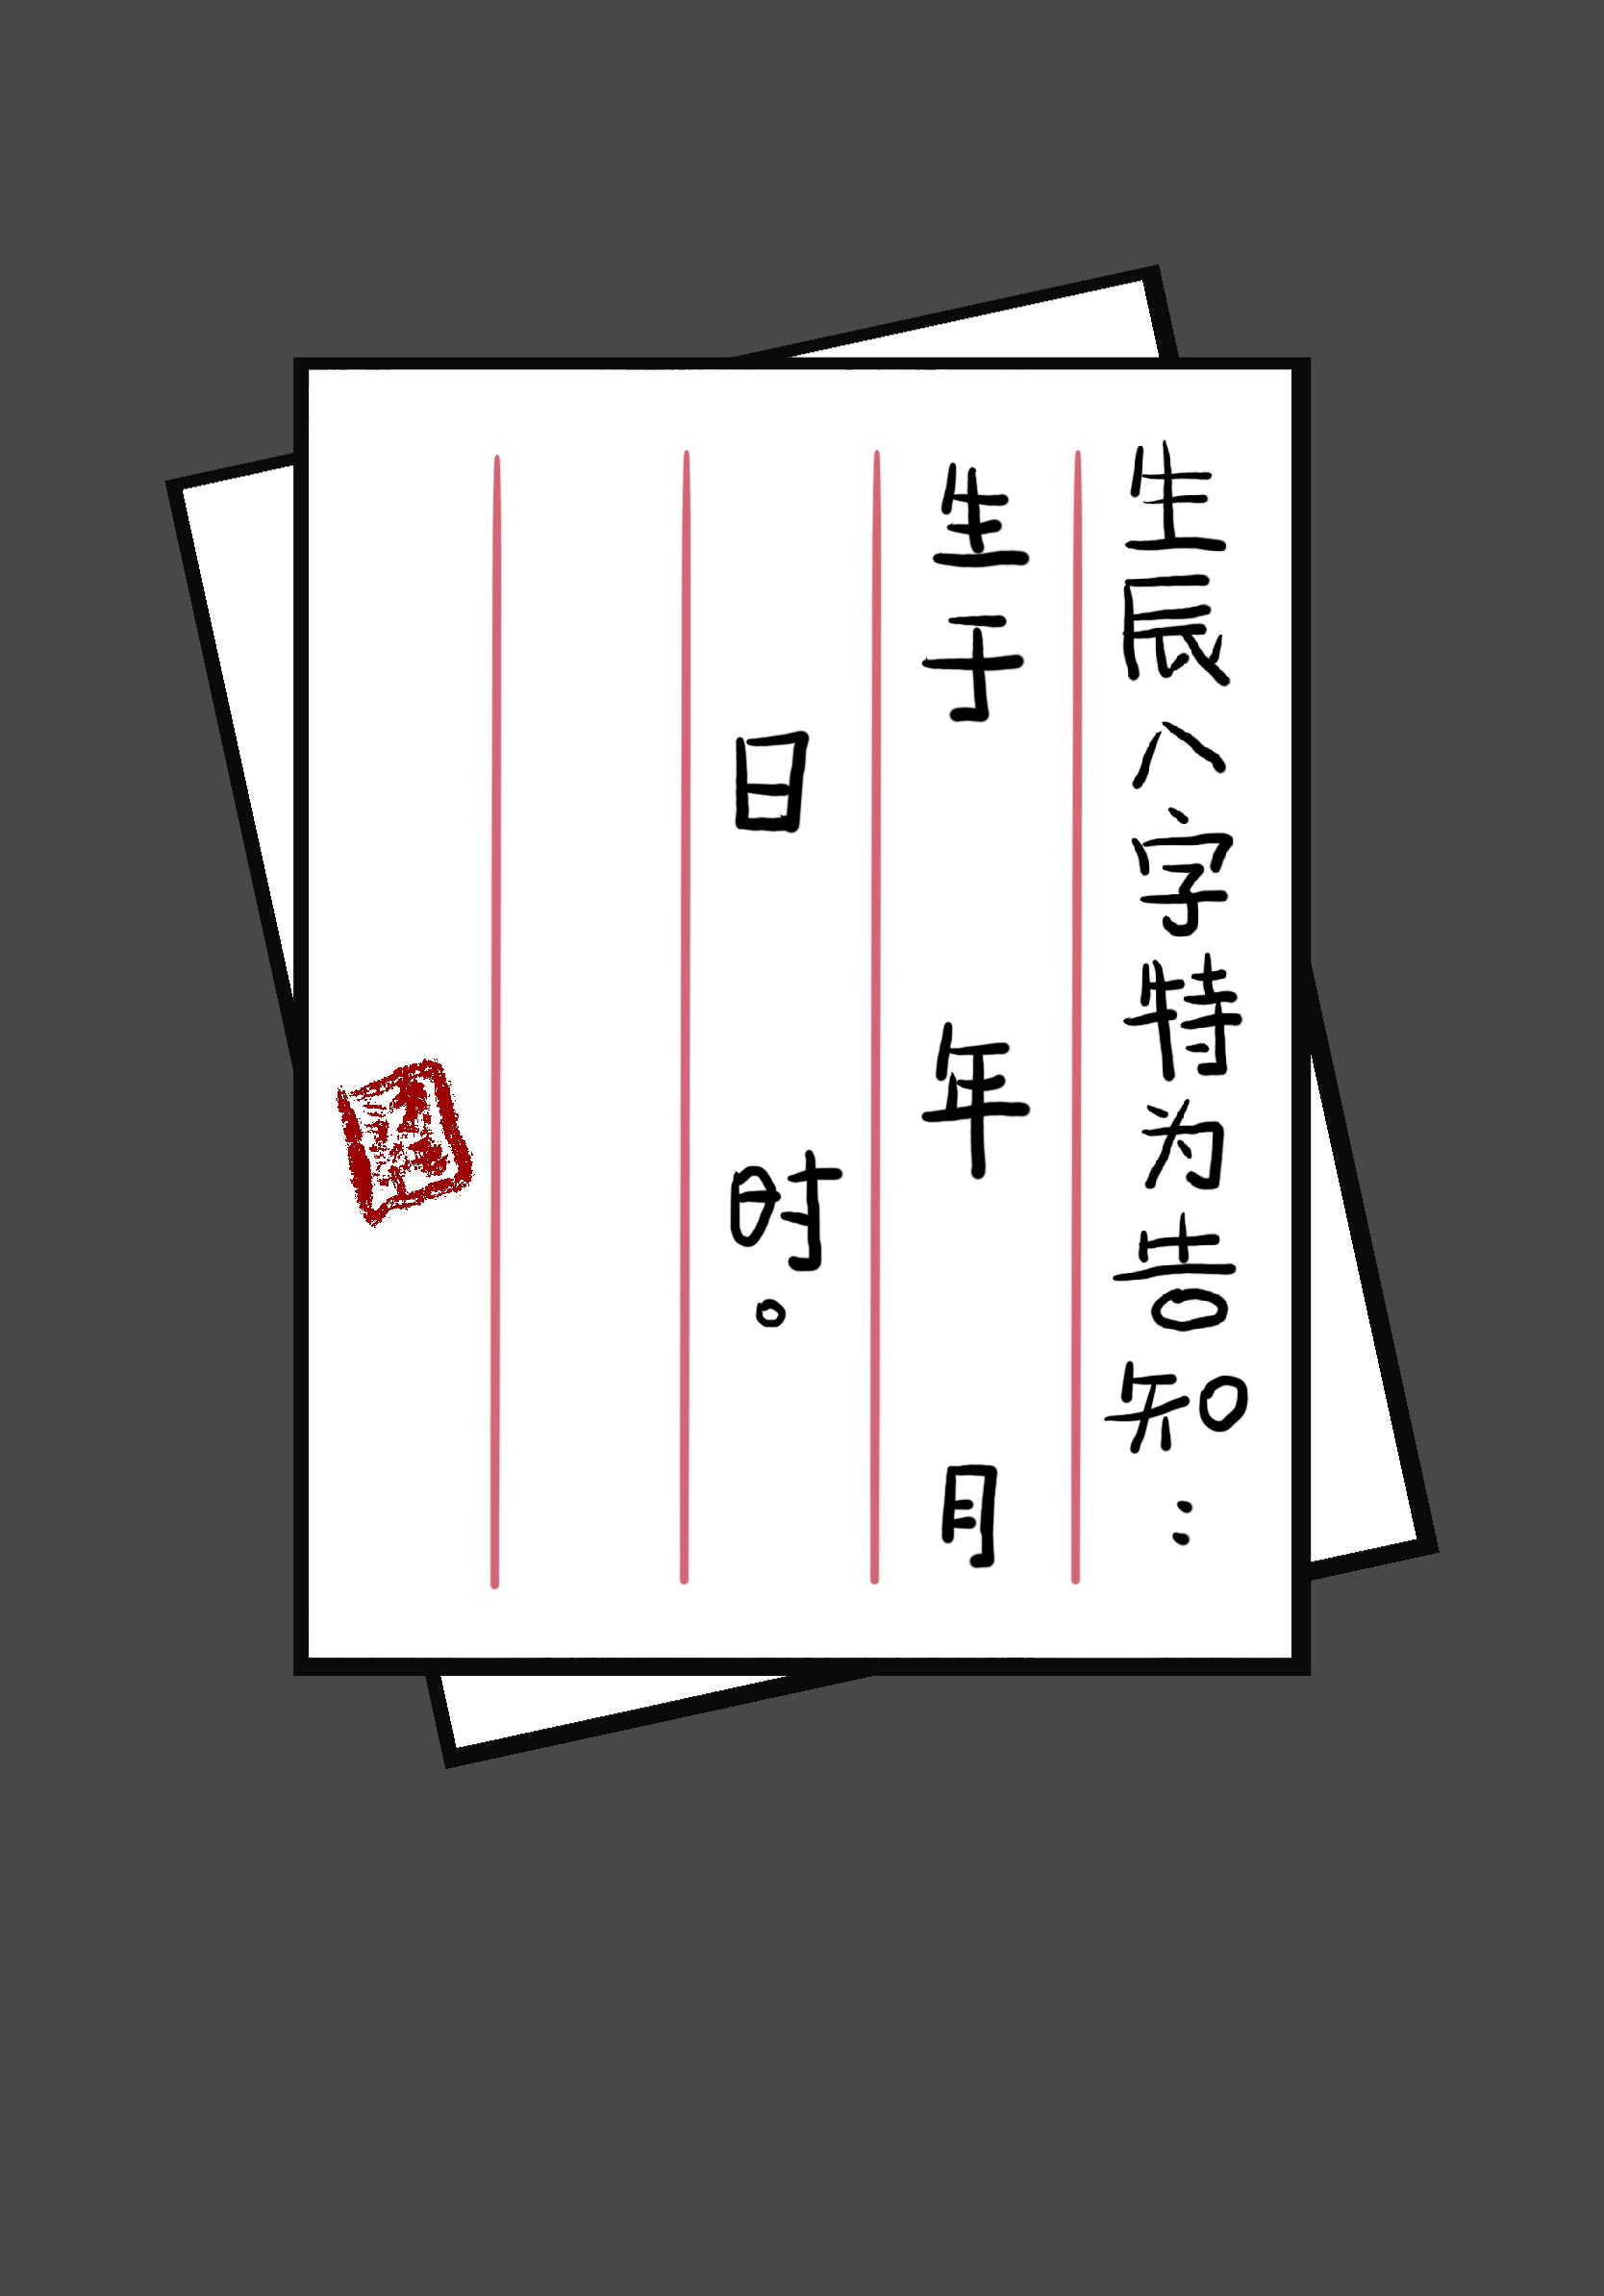 生辰八字特为告知：
生于 年 月
日 时。